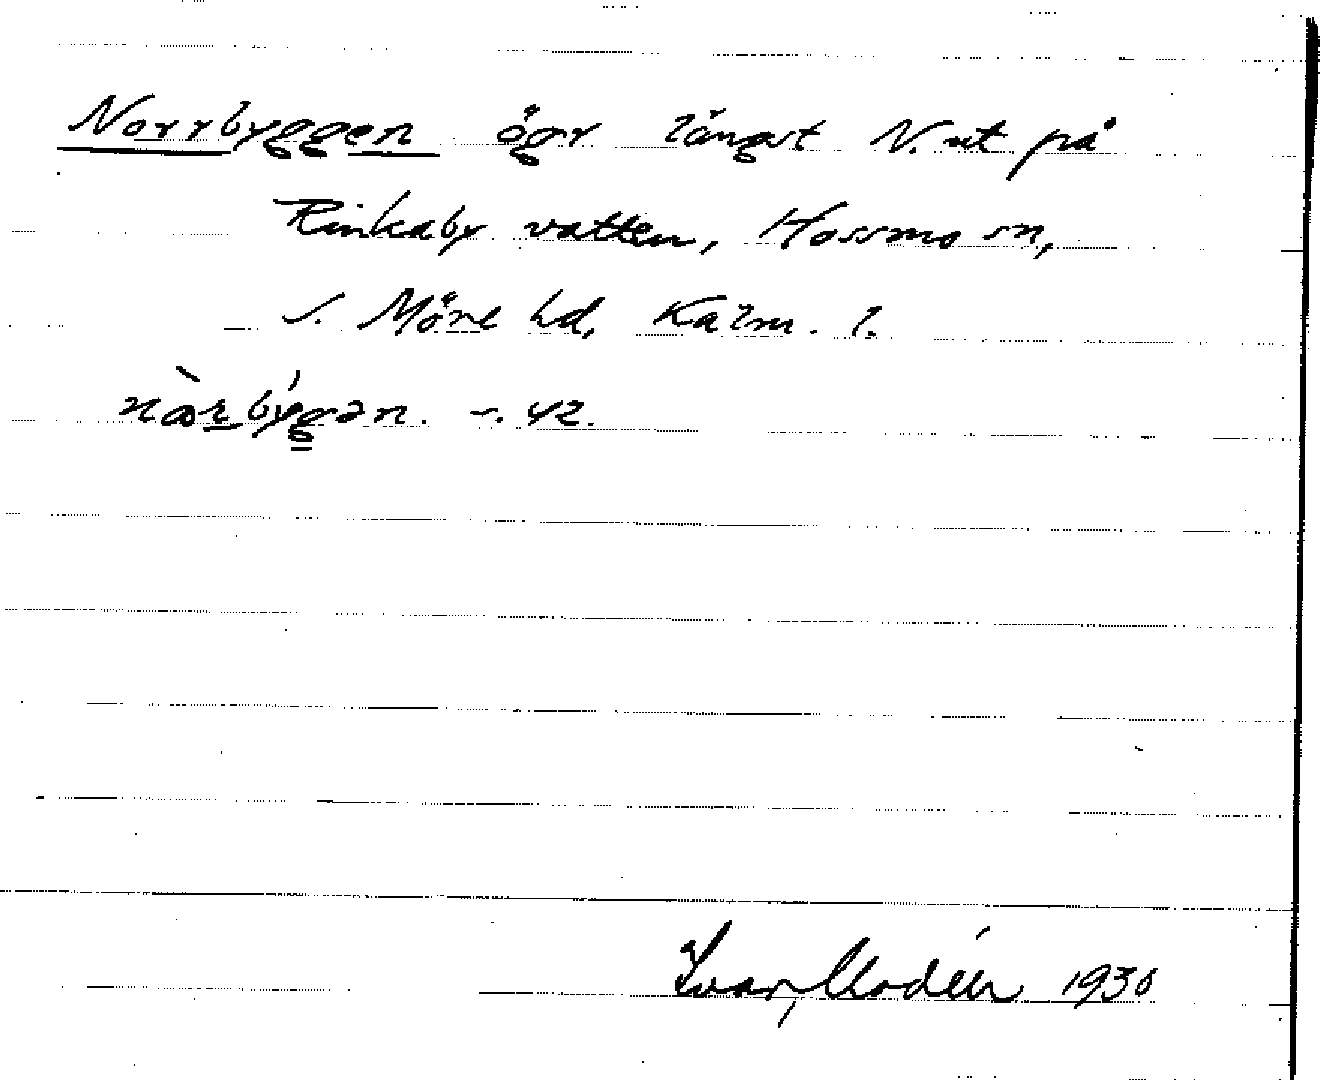 Norrbyggen ögr längst N. ut på
Rinkaby vatten, Hossmo sn,
S. Möre hd, Kalm. l.
42.
Ivar Modéer 1930